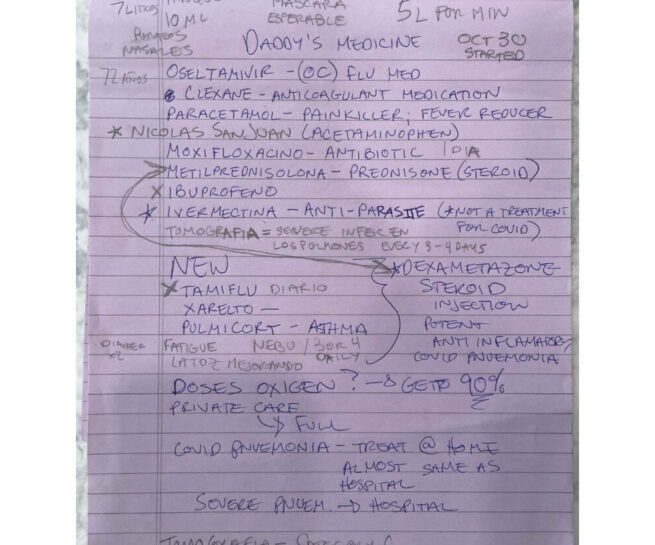 MASCARA
7 LITROS 10 ML ESPERABLE 5L POR MIN
NASALES DADDY'S MEDICINE OCT 30
STARTED
72 AÑOS OSELTAMIVIR - (OC) FLU MED
CLEXANE - ANTICOAGULANT MEDICATION
PARACETAMOL - PAINKILLER; FEVER REDUCER
* NICOLAS SAN JUAN (ACETAMINOPHEN)
MOXIFLOXACINO - ANTIBIOTIC 1 DIA
METILPREDNISOLONA - PREDNISONE (STEROID)
X IBUPROFENO
* IVERMECTINA - ANTI-PARASITE (*NOT A TREATMENT
FOR COVID)
TOMOGRAFIA = SEVERE INFEC EN
LOS POLMONES EVERY 3-4 DAYS
NEW *DEXAMETAZONE
X TAMIFLU DIARIO STEROID
XARELTO - INJECTION
PULMICORT - ASTHMA POTENT
FATIGUE NEBU / 3 OR 4 ANTI INFLAMATORY
DAILY COVID PNUEMONIA
LA TOZ MEJORANDO
DOSES OXIGEN? → GETS 90%
PRIVATE CARE
↳ FULL
COVID PNUEMONIA - TREAT @ HOME
ALMOST SAME AS
HOSPITAL
SEVERE PNUEM. → HOSPITAL